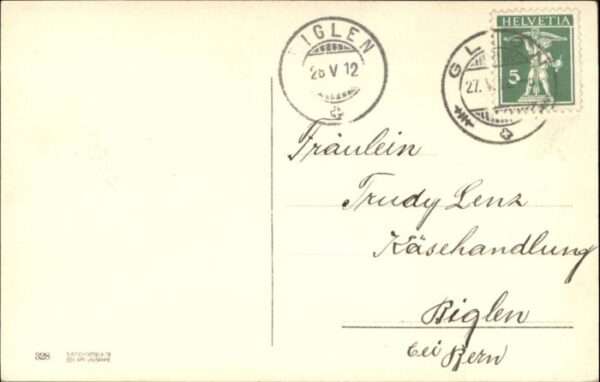 BIGLEN
28 V 12
HELVETIA
5
27. V.
Fräulein
Trudy Lenz
Käsehandlung
Biglen
bei Bern
328